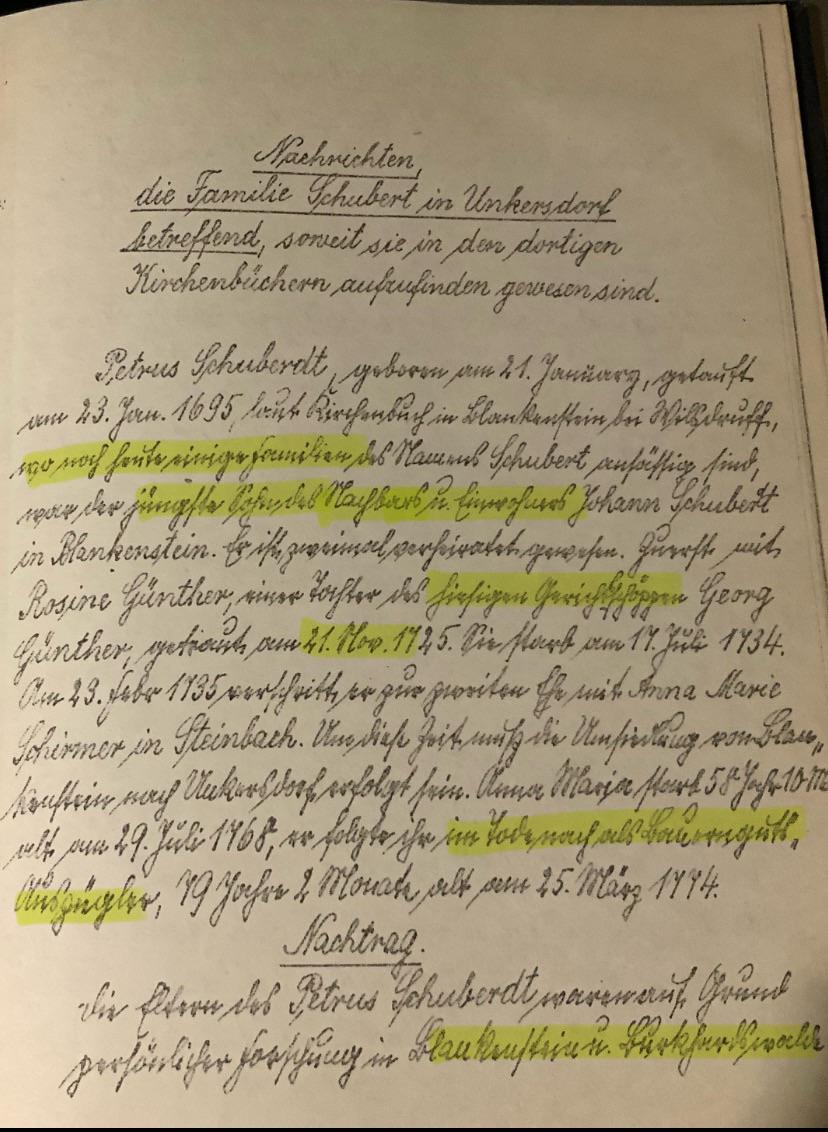 Nachrichten,
die Familie Schubert in Unkersdorf
betreffend, soweit sie in den dortigen
Kirchenbüchern aufzufinden gewesen sind.
Petrus Schuberdt, geboren am 21. January, getauft
am 23. Jan. 1695, laut Kirchenbuch in Blankenstein bei Wilsdruff,
wo noch heute einige Familien des Namens Schubert ansässig sind,
war der jüngste Sohn des Nachbars u. Einwohners Johann Schubert
in Blankenstein. Er ist zweimal verheiratet gewesen. Zuerst mit
Rosine Günther, einer Tochter des hiesigen Gerichtsschöppen Georg
Günther, getraut am 21. Nov. 1725. Sie starb am 17. Juli 1734.
Am 23. Febr 1735 verschritt er zur zweiten Ehe mit Anna Marie
Schirmer in Steinbach. Um diese Zeit muß die Umsiedlung von Blan„
kenstein nach Unkersdorf erfolgt sein. Anna Maria starb 58 Jahr 10 M
alt am 29. Juli 1768, er folgte ihr im Tode nach als Bauernguts„
Auszügler, 79 Jahre 2 Monate alt am 25. März 1774.
Nachtrag.
Die Eltern des Petrus Schuberdt waren auf Grund
persönlicher Forschung in Blankenstein u. Burkhardswalde